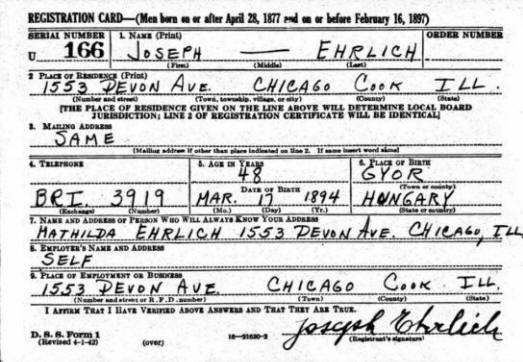 REGISTRATION CARD—(Men born on or after April 28, 1877 and on or before February 16, 1897)
SERIAL NUMBER 1. NAME (Print) ORDER NUMBER
U 166 JOSEPH — EHRLICH
(First) (Middle) (Last)
2 PLACE OF RESIDENCE (Print)
1553 DEVON AVE. CHICAGO COOK ILL.
(Number and street) (Town, township, village, or city) (County) (State)
[THE PLACE OF RESIDENCE GIVEN ON THE LINE ABOVE WILL DETERMINE LOCAL BOARD
JURISDICTION; LINE 2 OF REGISTRATION CERTIFICATE WILL BE IDENTICAL]
3. MAILING ADDRESS
SAME
[Mailing address if other than place indicated on line 2. If same insert word same]
4. TELEPHONE 5. AGE IN YEARS 6. PLACE OF BIRTH
48 GYOR
DATE OF BIRTH (Town or county)
BRI. 3919 MAR. 17 1894 HUNGARY
(Exchange) (Number) (Mo.) (Day) (Yr.) (State or country)
7. NAME AND ADDRESS OF PERSON WHO WILL ALWAYS KNOW YOUR ADDRESS
MATHILDA EHRLICH 1553 DEVON AVE. CHICAGO, ILL
8. EMPLOYER'S NAME AND ADDRESS
SELF
9. PLACE OF EMPLOYMENT OR BUSINESS
1553 DEVON AVE. CHICAGO COOK ILL.
(Number and street or R.F.D. number) (Town) (County) (State)
I AFFIRM THAT I HAVE VERIFIED ABOVE ANSWERS AND THAT THEY ARE TRUE.
D. S. S. Form 1
(Revised 4-1-42) (over) Joseph Ehrlich
(Registrant's signature)